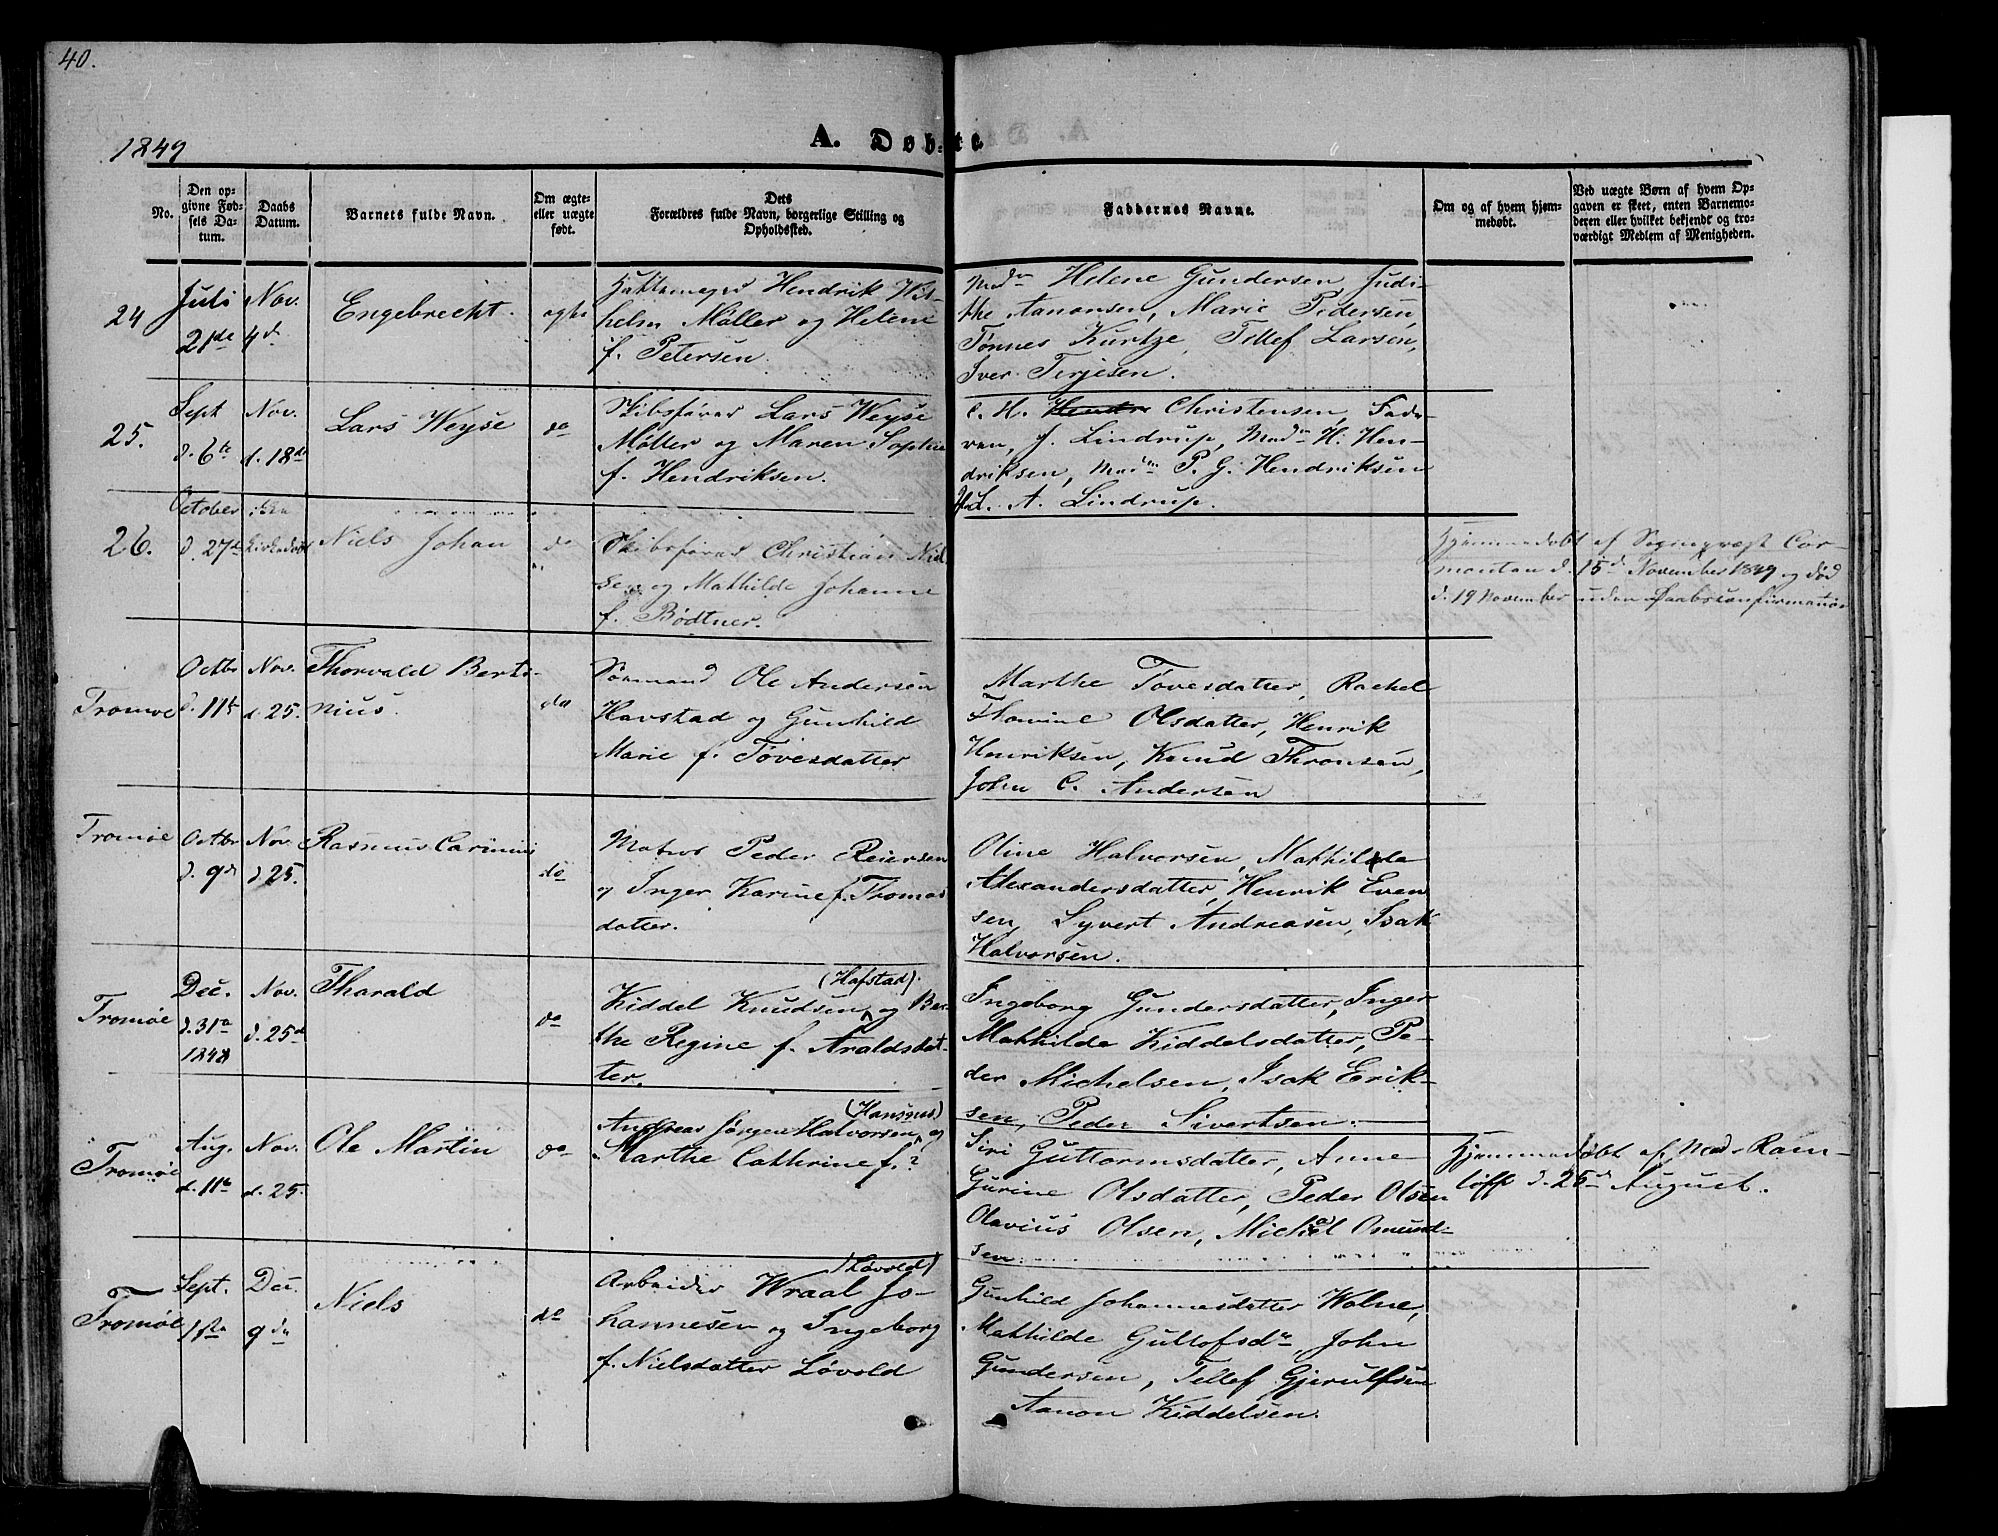 40.
1849
A. Døbte.
No.
Den opgivne Fødsels Datum.
Daabs Datum.
Barnets fulde Navn.
Om ægte eller uægte født.
Dets Forældres fulde Navn, borgerlige Stilling og Opholdssted.
Faddernes Navne.
Om og af hvem hjemmedøbt.
Ved uægte Børn af hvem Opgaven er skeet, enten Barnemoderen eller hvilket bekjendt og troværdigt Medlem af Menigheden.
24
Juli 21de
Nov. 4d
Engebrecht.
ægte
Hattemager Hendrik Wil-
helm Møller og Helene
f. Petersen.
Madm Helene Gundersen, Judi-
the Aanonsen, Marie Pedersen,
Tønnes Kurtze, Tellef Larsen,
Iver Terjesen.
25.
Sept d. 6te
Nov. d. 18de
Lars Weyse
do
Skibsfører Lars Weyse
Møller og Maren Sophie
f. Hendriksen.
C. H. Christensen, Fade-
ren, J. Lindrup, Madm H. Hen-
driksen, Madm P. G. Hendriksen
A. Lindrup.
26.
October d. 27de
Niels Johan
do
Skibsfører Christian Niel-
sen og Mathilde Johanne
f. Bødtner.
Hjemmedøbt af Sogneprest Cor-
montan d. 15d November 1849 og død
d. 19 November uden Daabsconfirmation
Tromøe
Octbr d. 11te
Nov. d. 25.
Thorvald Berti-
nius.
do
Sømand Ole Andersen
Havstad og Gunhild
Marie f. Tovesdatter
Marthe Tovesdatter, Rachel
Thomine Olsdatter, Henrik
Henriksen, Knud Thronsen,
John C. Andersen
Tromøe
Octbr d. 9de
Nov. d 25.
Rasmus Carinius
do
Matros Peder Reiersen
og Inger Karine f. Thomas-
datter.
Oline Halvorsen, Mathilde
Alexandersdatter, Henrik Even-
sen, Syvert Andreasen, Isak
Halvorsen.
Tromøe
Dec. d. 31te 1848
Nov. d. 25d
Tharald
do
(Hafstad).
Kiddel Knudsen og Ber-
the Regine f. Araldsdat-
ter.
Ingeborg Gundersdatter, Inger
Mathilde Kiddelsdatter, Pe-
der Michelsen, Isak Erik-
sen, Peder Sivertsen.
Tromøe
Aug. d. 11te
Nov. d. 25.
Ole Martin
do
Andreas Jørgen Halvorsen og
Marthe Cathrine f. ?
Siri Guttormsdatter, Anne
Gurine Olsdatter, Peder Olsen
Olavius Olsen, Michael Omund-
sen
Hjemmedøbt af Mad. Ram-
løff d. 25d August.
Tromøe
Sept. 1ste
Dec. 9de
Niels
do
(Løvold)
Arbeider Wraal Jo-
hannesen og Ingeborg
f. Nielsdatter Løvold
Gunhild Johannesdatter Wolne,
Mathilde Guttofsdr, John
Gundersen, Tellef Gjerulfsen
Aanon Kiddelsen.